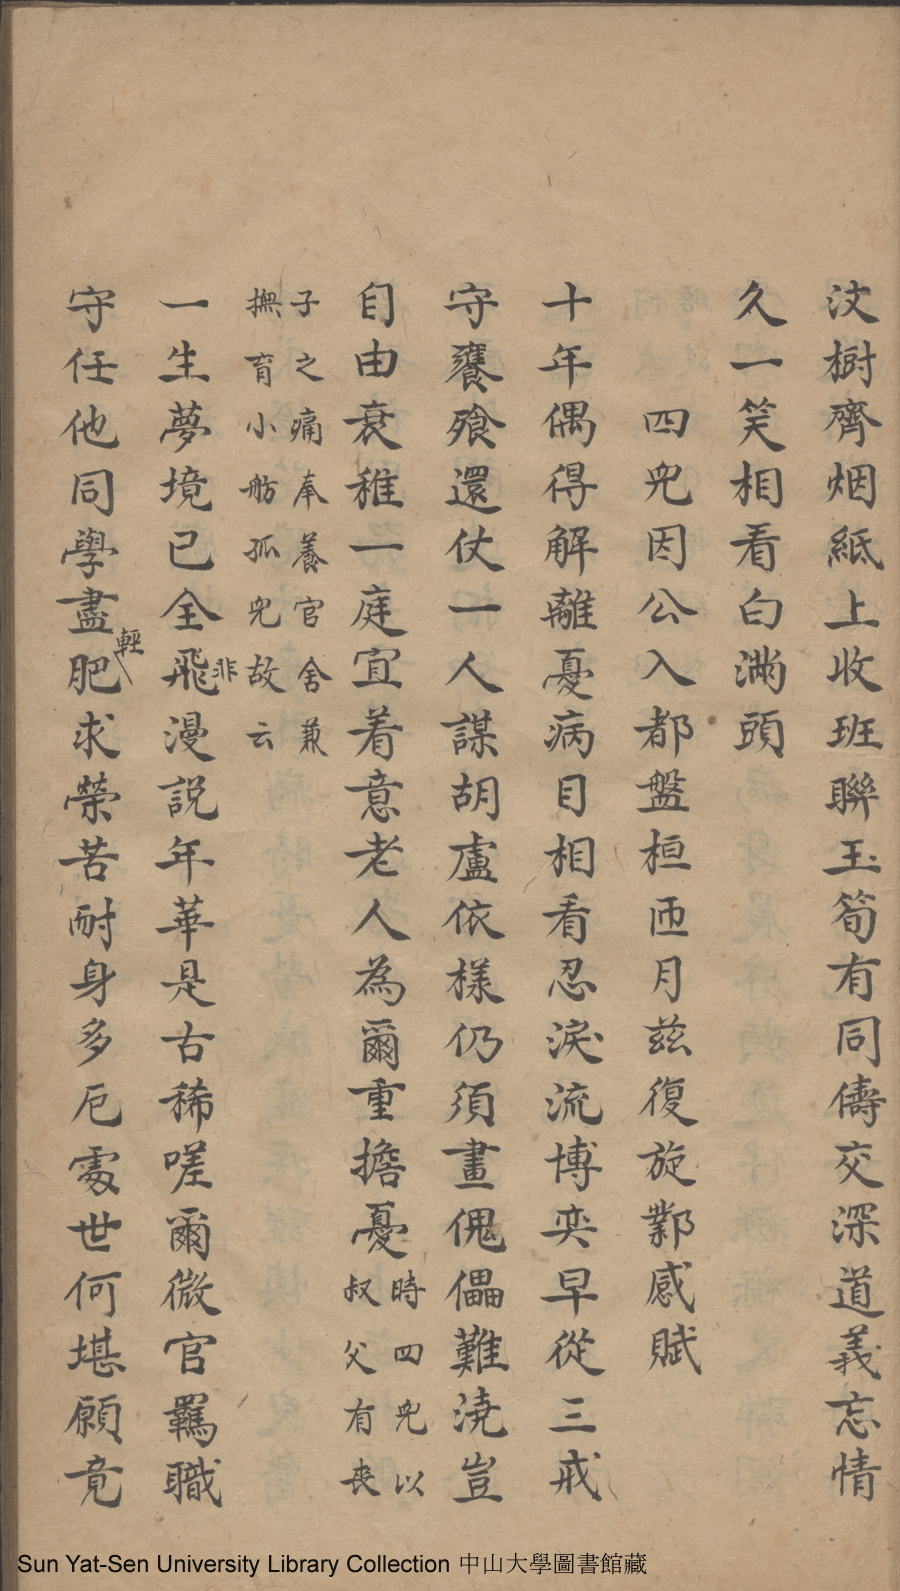 汶樹齊烟紙上收班聯玉筍有同儔交深道義忘情
久一笑相看白滿頭
四兒因公入都盤桓匝月茲復旋鄴感賦
十年偶得解離憂病目相看忍淚流博奕早從三戒
守饔飧還仗一人謀胡盧依樣仍須畫傀儡難澆豈
自由衰稚一庭宜着意老人為爾重擔憂時四兒以
叔父有喪
子之痛奉養官舍兼
撫育小舫孤兒故云
一生夢境已全飛非漫説年華是古稀嗟爾微官羈職
守任他同學盡肥輕求榮苦耐身多厄處世何堪願竟
Sun Yat-Sen University Library Collection 中山大學圖書館藏